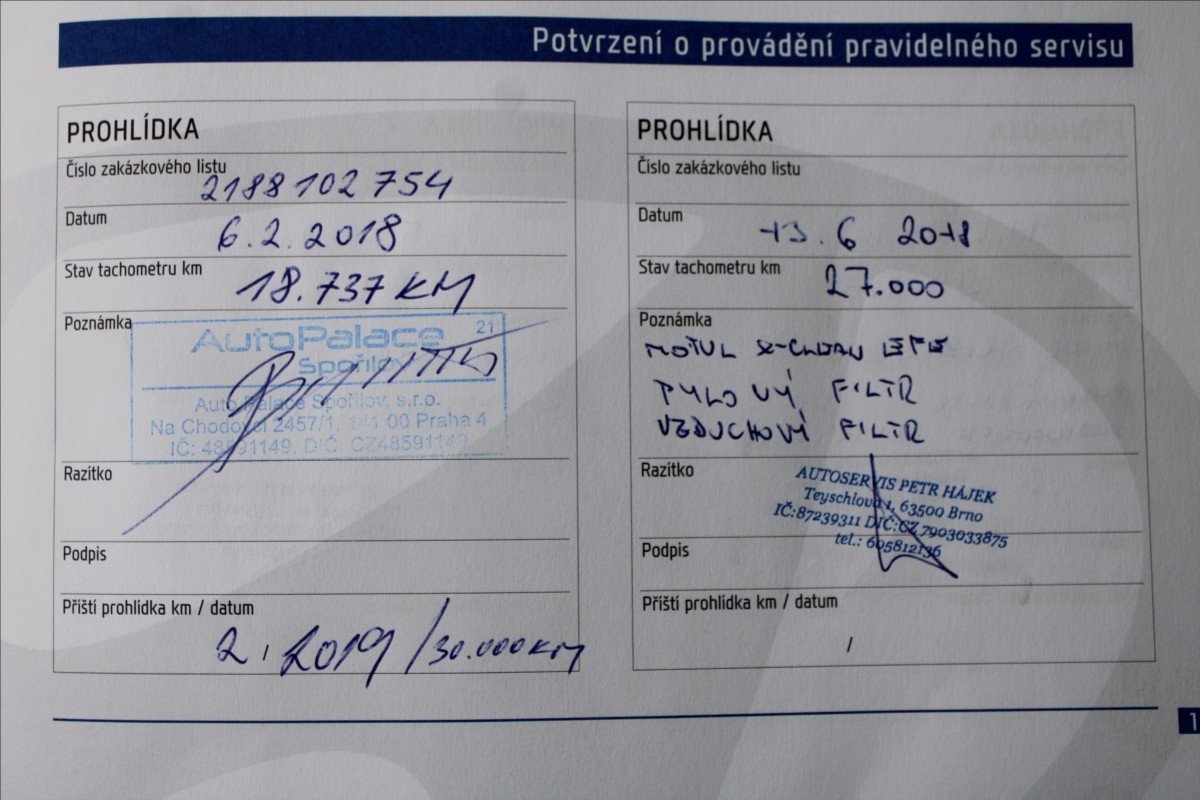 Potvrzení o provádění pravidelného servisu
PROHLÍDKA
Číslo zakázkového listu
2188 102 754
Datum
6.2.2018
Stav tachometru km
18.737 KM
Poznámka
21
AutoPalace
Spořilov
Auto Palace Spořilov, s.r.o.
Na Chodovci 2457/1, 141 00 Praha 4
IČ: 48591149, DIČ: CZ48591149
Razítko
Podpis
Příští prohlídka km / datum
2 / 2019 /30.000KM
PROHLÍDKA
Číslo zakázkového listu
Datum
13. 6 2018
Stav tachometru km
27.000
Poznámka
MOTUL X-CLEAN
PYLOVÝ FILTR
VZDUCHOVÝ FILTR
Razítko
AUTOSERVIS PETR HÁJEK
Teyschlova 1, 63500 Brno
IČ:87239311 DIČ:CZ 7903033875
tel.: 605812136
Podpis
Příští prohlídka km / datum
/
1